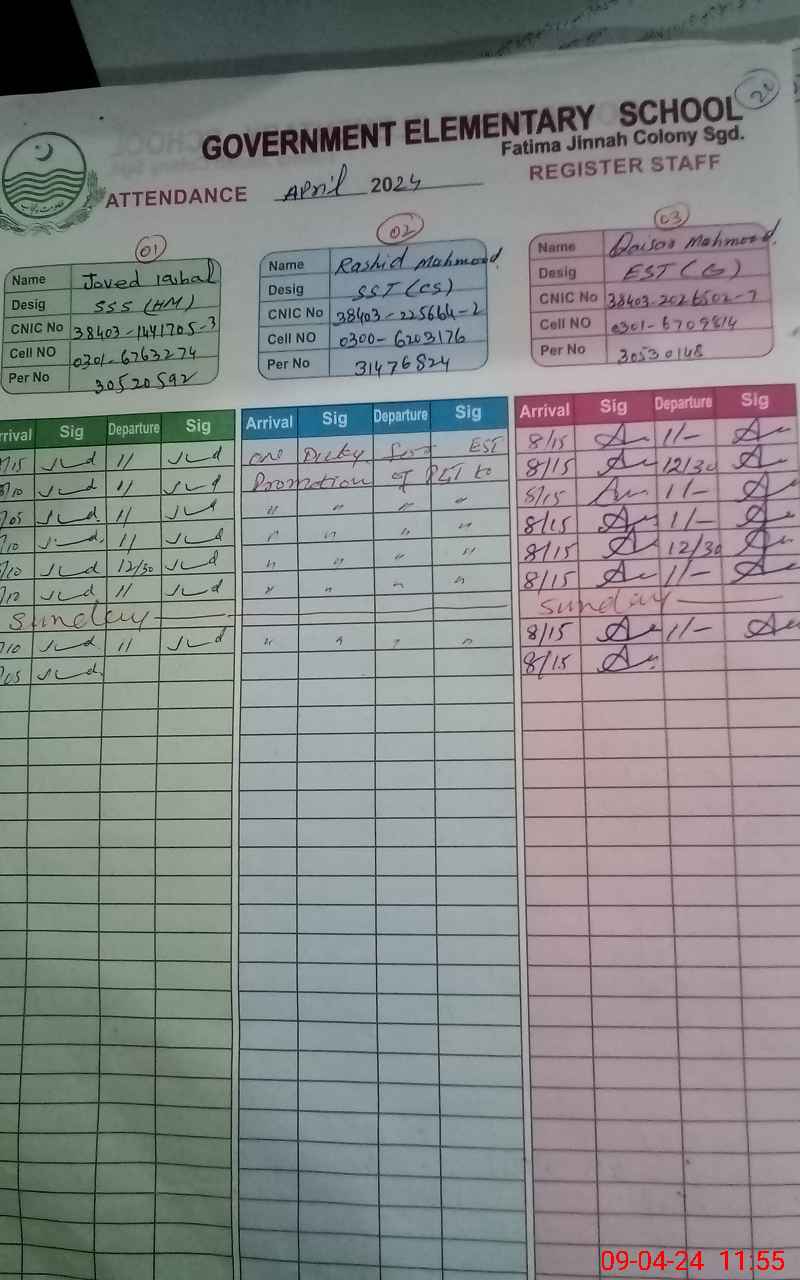 20
GOVERNMENT ELEMENTARY SCHOOL
Fatima Jinnah Colony Sgd.
ATTENDANCE April 2024 REGISTER STAFF
01
Name Javed Iqbal
Desig SSS (HM)
CNIC No 38403-1441705-3
Cell NO 0301-6763274
Per No 30520592
02
Name Rashid Mahmood
Desig SST (CS)
CNIC No 38403-225664-2
Cell NO 0300-6203176
Per No 31476824
03
Name Qaisar Mahmood
Desig EST (G)
CNIC No 38403-2026502-7
Cell NO 0301-6709814
Per No 30530148
rrival Sig Departure Sig
/15 //
/10 //
/05 //
/10 //
/10 12/30
/10 //
Sunday
/10 //
/05
Arrival Sig Departure Sig
on EST
Promotion of to
" " " "
" " " "
" " " "
" " " "
" " " "
Arrival Sig Departure Sig
8/15 1/-
8/15 12/30
8/15 1/-
8/15 1/-
8/15 12/30
8/15 1/-
Sunday
8/15 1/-
8/15
09-04-24 11:55